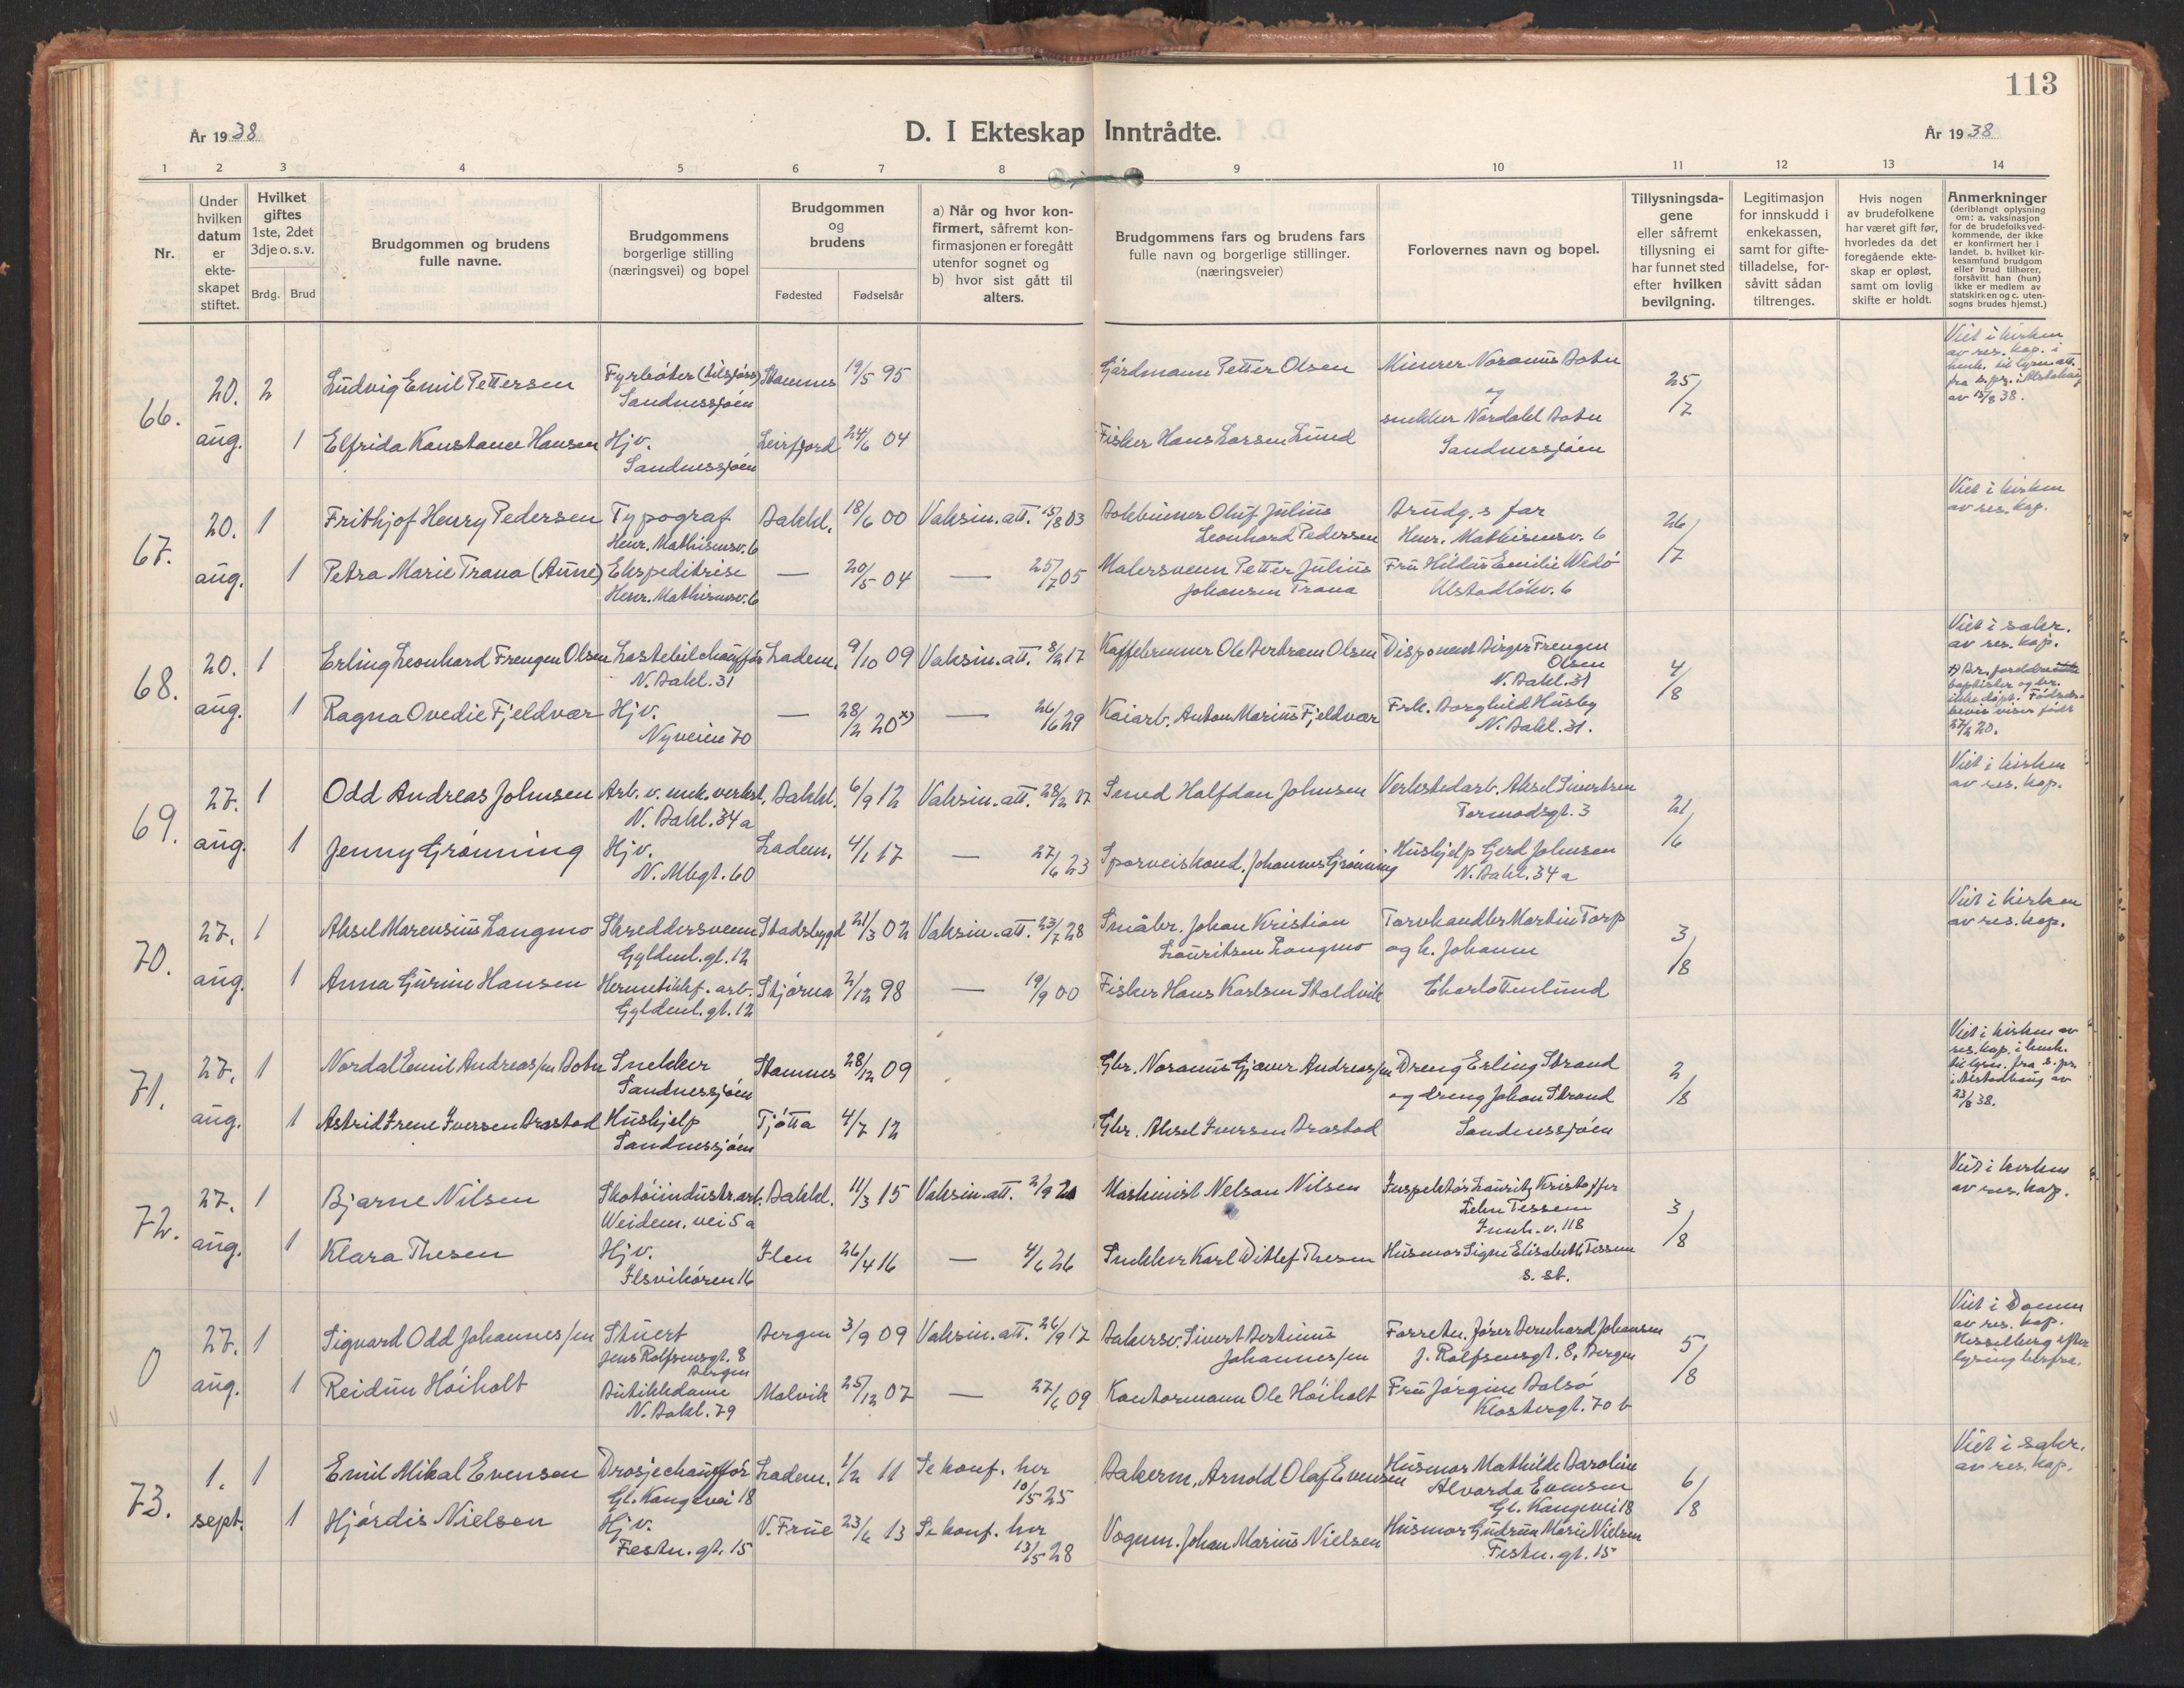 113
År 1938
D. I Ekteskap Inntrådte.
År 1938
1 2 3 4 5 6 7 8 9 10 11 12 13 14
Nr.
Under hvilken datum er ekte-skapet stiftet.
Hvilket giftes 1ste, 2det 3dje o. s. v.
Brdg. Brud
Brudgommen og brudens fulle navne.
Brudgommens borgerlige stilling (næringsvei) og bopel
Brudgommen og brudens
Fødested Fødselsår
a) Når og hvor kon-firmert, såfremt kon-firmasjonen er foregått utenfor sognet og
b) hvor sist gått til alters.
Brudgommens fars og brudens fars fulle navn og borgerlige stillinger. (næringsveier)
Forlovernes navn og bopel.
Tillysningsda-gene eller såfremt tillysning ei har funnet sted efter hvilken bevilgning.
Legitimasjon for innskudd i enkekassen, samt for gifte-tilladelse, for-såvitt sådan tiltrenges.
Hvis nogen av brudefolkene har været gift før, hvorledes da det foregående ekte-skap er opløst, samt om lovlig skifte er holdt.
Anmerkninger (deriblandt oplysning om: a. vaksinasjon for de brudefolks ved-kommende, der ikke er konfirmert her i landet. b. hvilket kir-kesamfund brudgom eller brud tilhører, forsåvitt han (hun) ikke er medlem av statskirken og c. uten-sogns brudes hjemst.)
66. 20. aug. 2 Ludvig Emil Pettersen Fyrbøter (tilsjøss) Sandnessjøen Stamnes 19/5 95 Gårdmann Petter Olsen Murer Noramus Botn og snekker Nordahl Botn Sandnessjøen 25/7 Viet i kirken av res. kap. i henh. til lysn.att. fra s.pr. i Alstahaug av 15/8 38.
1 Elfrida Konstance Hansen Hjv. Sandnessjøen Leirfjord 24/6 04 Fisker Hans Larsen Lund
67. 20. aug. 1 Frithjof Henry Pedersen Typograf Henr. Mathisensv. 6 Bakkl. 18/6 00 Vaksin. att. 15/8 03 Bokbinner Oluf Julius Leonhard Pedersen Brudg.s far Henr. Mathisensv. 6 26/7 Viet i kirken av res. kap.
1 Petra Marie Trana (Aune) Ekspeditrise Henr. Mathisensv. 6 — 20/5 04 — 25/7 05 Malersvenn Petter Julius Johansen Trana Fru Hildur Emilie Wedø Ulstadløkv. 6
68. 20. aug. 1 Erling Leonhard Frengen Olsen Lastebilchauffør N. Bakl. 31 Ladem. 9/10 09 Vaksin. att. 8/2 17 Kaffebrenner Ole Bertram Olsen Disponent Birger Frengen Olsen N. Bakl. 31 4/8 Viet i sakr. av res. kap.
1 Ragna Ovedie Fjeldvær Hjv. Nyveien 70 — 28/2 20 x) — 26/6 29 Kaiarb. Anton Marius Fjeldvær Frk. Borghild Husby N. Bakl. 31. x) Br. foreldre baptister og br. ikke døpt. Fødsels-bevis viser født 27/2 20.
69. 27. aug. 1 Odd Andreas Johnsen Arb. v. mek. verkst. N. Bakl. 34 a Bakkl. 6/9 12 Vaksin. att. 28/2 17 Smed Halfdan Johnsen Verkstedarb. Aksel Sivertsen Tormodsgt. 3 21/6 Viet i kirken av res. kap.
1 Jenny Grønning Hjv. N. Mbgt. 60 Ladem. 4/1 17 — 27/6 23 Sporveiskond. Johannes Grønning Hushjelp Gerd Johnsen N. Bakl. 34 a
70. 27. aug. 1 Aksel Marensius Langmo Skreddersvenn Gyldenl. gt. 12 Stadsbygd 21/3 02 Vaksin. att. 23/7 28 Småbr. Johan Kristian Lauritsen Langmo Torvhandler Martin Torp og h. Johanne Charlottenlund 3/8 Viet i kirken av res. kap.
1 Anna Gurine Hansen Hermetikkf. arb. Gyldenl. gt. 12 Stjørna 2/12 98 — 19/9 00 Fisker Hans Karlsen Staldvik
71. 27. aug. 1 Nordal Emil Andreassen Botn Snekker Sandnessjøen Stamnes 28/12 09 Gbr. Noramus Gjæver Andreassen Dreng Erling Strand og dreng Johan Strand Sandnessjøen 2/8 Viet i kirken av res. kap. i henh. til lysn. fra s.pr. i Alstadhaug av 23/8 38.
1 Astrid Irene Iversen Brastad Hushjelp Sandnessjøen Tjøtta 4/7 12 Gbr. Aksel Iversen Brastad
72. 27. aug. 1 Bjarne Nilsen Skotøiindustr.arb. Weidem. vei 5 a Bakkl. 11/3 15 Vaksin. att. 2/9 20 Maskinist Nelson Nilsen Inspektør Lauritz Kristoffer Lehn Tessem Innh. v. 118 3/8 Viet i kirken av res. kap.
1 Klara Thesen Hjv. Ilsvikøren 16 Ilen 26/4 16 — 4/6 26 Snekker Karl Ditlef Thesen Husmor Signe Elisabeth Tessem s. st.
0 27. aug. 1 Sigvard Odd Johannessen Stuert Jens Rolfsensgt. 8 Bergen Bergen 3/9 09 Vaksin. att. 26/9 17 Bakersv. Sivert Bertinius Johannessen Forretn. fører Bernhard Johansen J. Rolfsensgt. 8, Bergen 5/8 Viet i Domen av res. kap. Hesselberg efter lysing herfra.
1 Reidun Høiholt Butikkdame N. Bakl. 79 Malvik 25/12 07 — 27/6 09 Kontormann Ole Høiholt Fru Jørgine Balsø Klostergt. 70 b
73. 1. sept. 1 Emil Mikal Evensen Drosjechauffør Gl. Kongevei 18 Ladem. 1/2 11 Se konf. her 10/5 25 Bakerm. Arnold Olaf Evensen Husmor Mathilde Baroline Alvarda Evensen Gl. Kongevei 18 6/8 Viet i sakr. av res. kap.
1 Hjørdis Nielsen Hjv. Festn. gt. 15 V. Frue 23/6 13 Se konf. her 13/5 28 Vognm. Johan Marius Nielsen Husmor Gudrun Marie Nielsen Festn. gt. 15